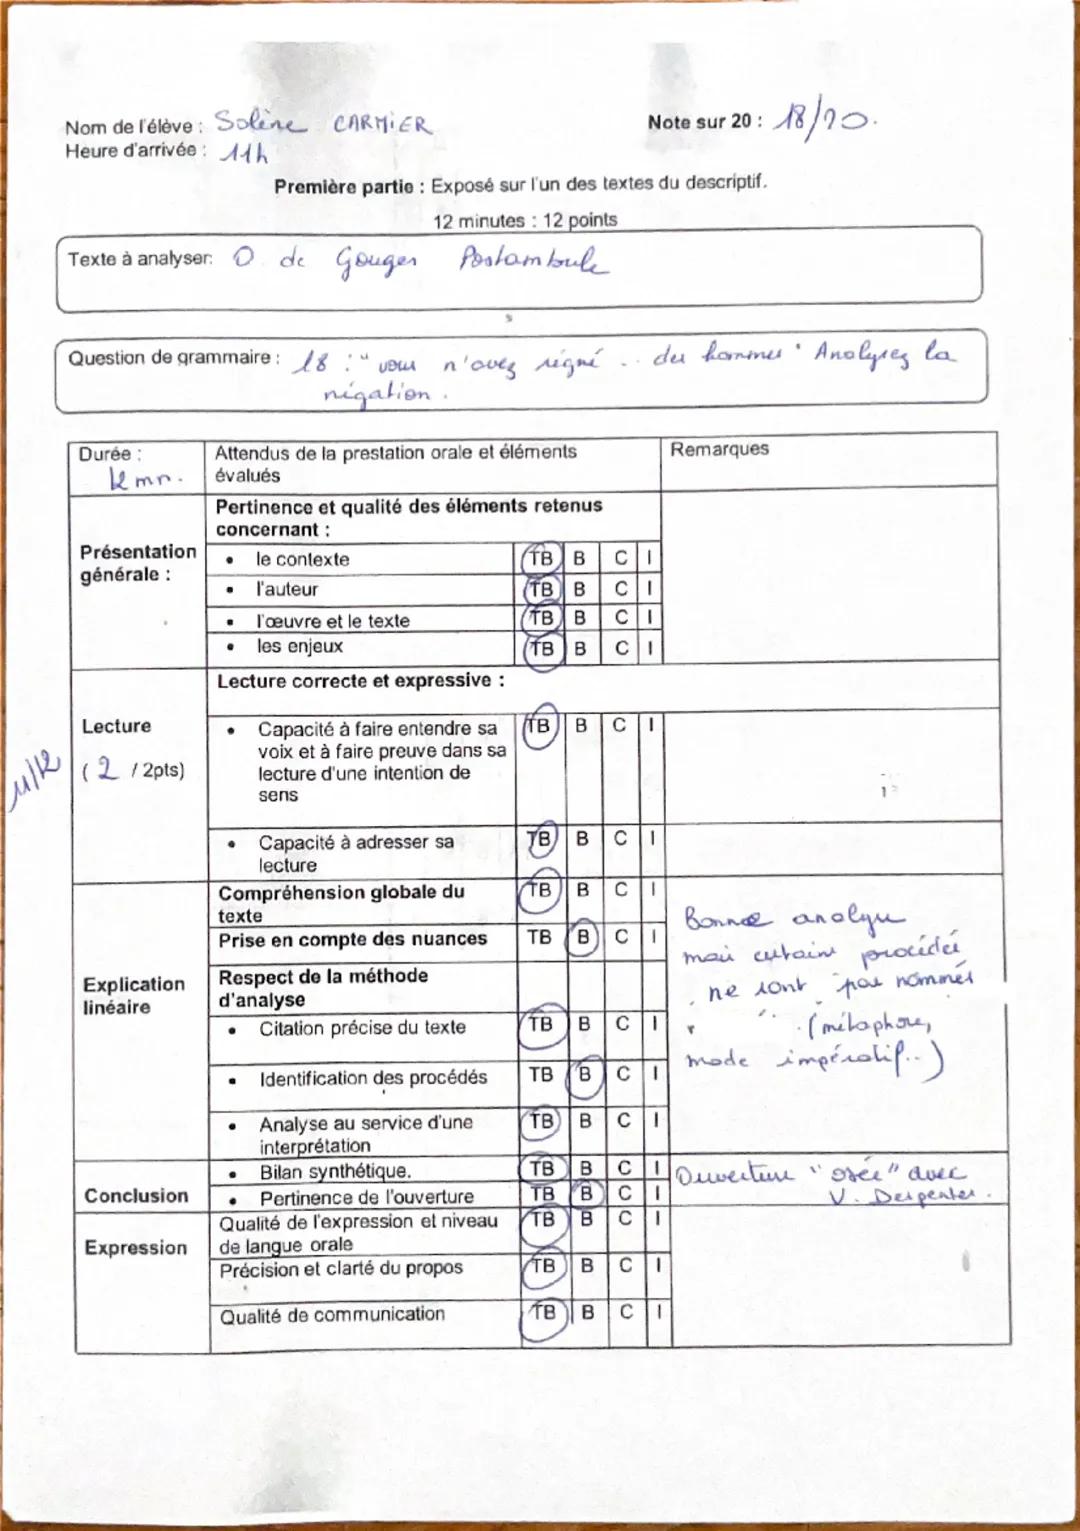 Nom de l'élève : Solène CARMIER
Note sur 20 : 18/20.
Heure d'arrivée : 11h
Première partie : Exposé sur l'un des textes du descriptif.
12 minutes : 12 points
Texte à analyser: O. de Gouges Postambule
Question de grammaire : l8 : "vous n'avez régné .. des hommes" Analysez la
négation.
Durée :
12 mn.
Attendus de la prestation orale et éléments
évalués
Remarques
Présentation
générale :
Pertinence et qualité des éléments retenus
concernant :
• le contexte TB B C I
• l'auteur TB B C I
• l'œuvre et le texte TB B C I
• les enjeux TB B C I
11/12
Lecture
( 2 / 2pts)
Lecture correcte et expressive :
• Capacité à faire entendre sa TB B C I
voix et à faire preuve dans sa
lecture d'une intention de
sens
• Capacité à adresser sa TB B C I
lecture
Explication
linéaire
Compréhension globale du TB B C I
texte
Prise en compte des nuances TB B C I
Respect de la méthode
d'analyse
• Citation précise du texte TB B C I
• Identification des procédés TB B C I
• Analyse au service d'une TB B C I
interprétation
Bonne analyse
mais certains procédés
ne sont pas nommés
(métaphore,
mode impératif..)
Conclusion
• Bilan synthétique. TB B C I
• Pertinence de l'ouverture TB B C I
Ouverture "osée" avec
V. Despentes.
Expression
Qualité de l'expression et niveau TB B C I
de langue orale
Précision et clarté du propos TB B C I
Qualité de communication TB B C I